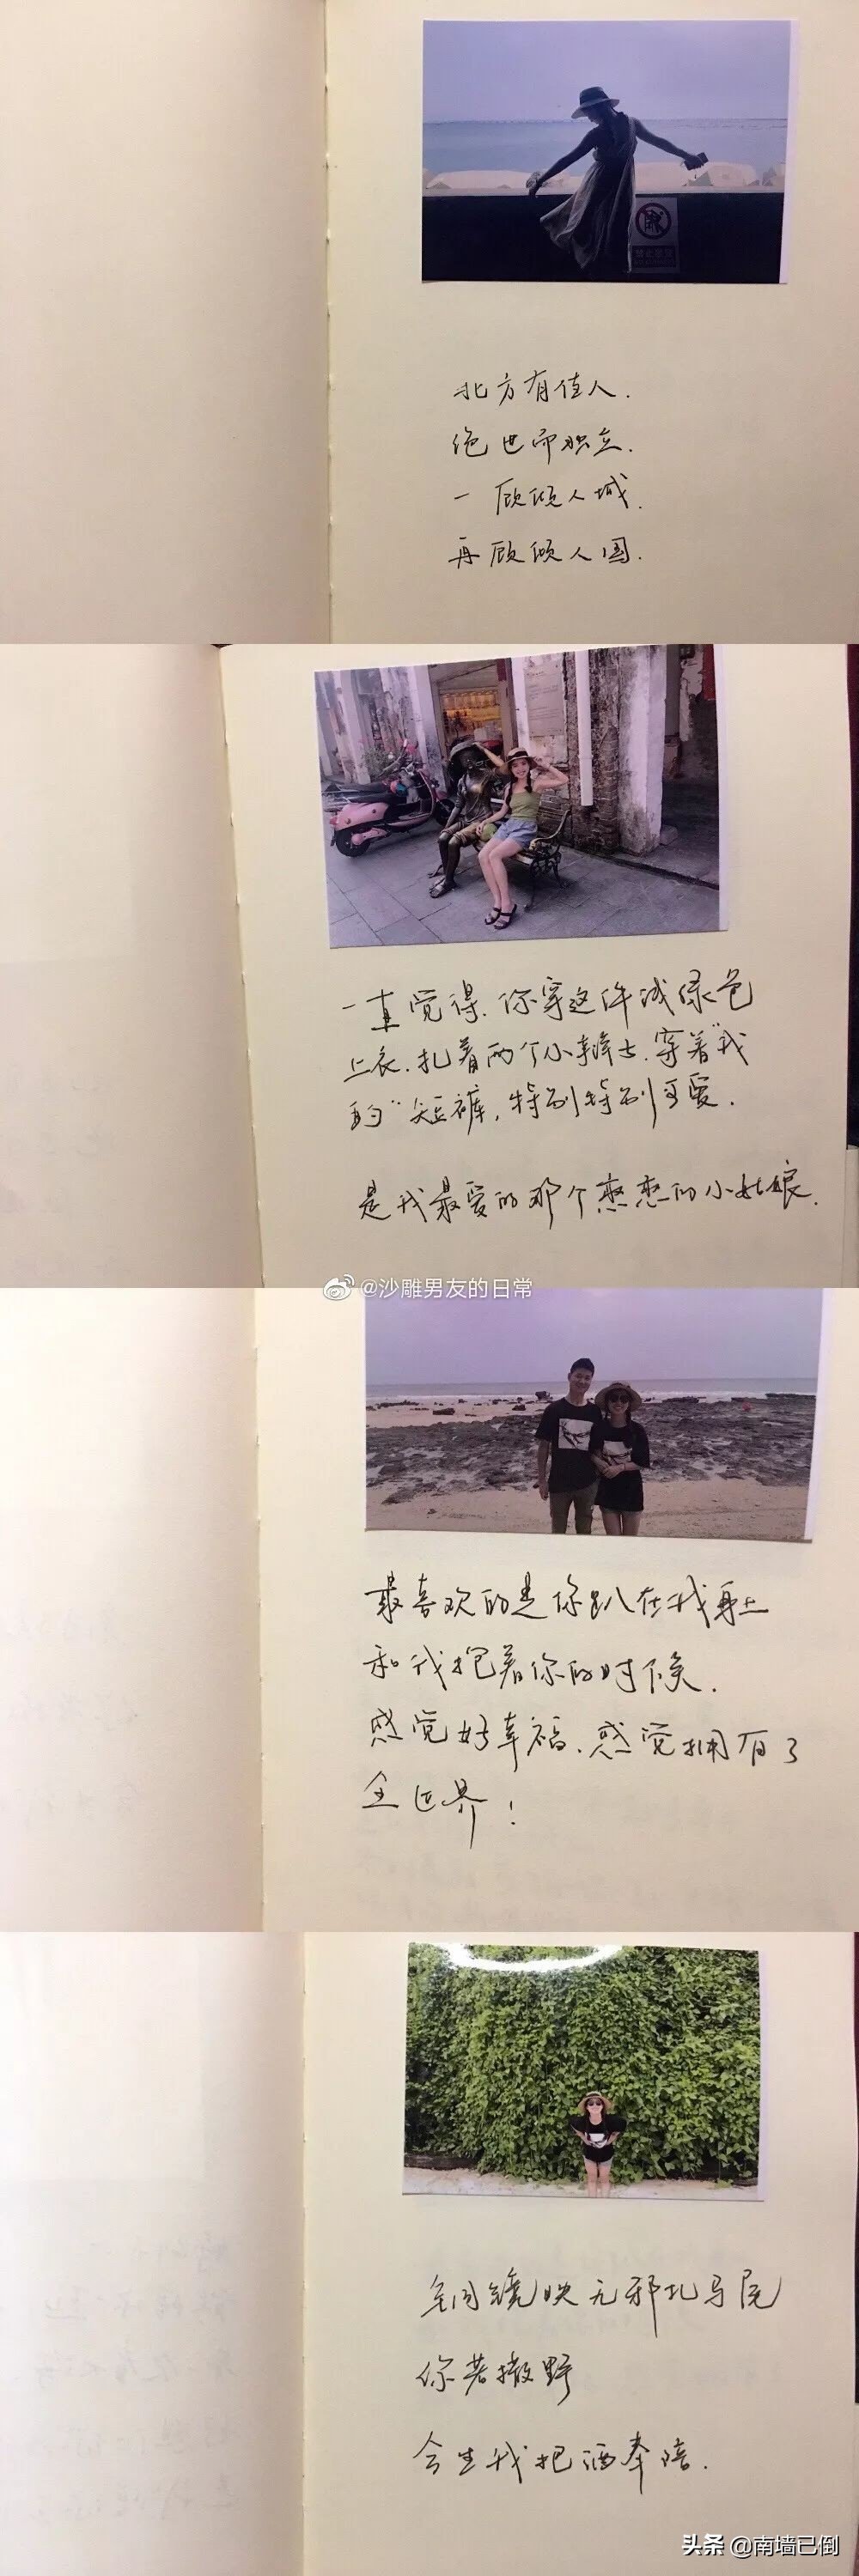 禁止翻越
北方有佳人.
绝世而独立.
一顾倾人城.
再顾倾人国.
一直觉得.你穿这件浅绿色
上衣.扎着两个小辫子.穿着"我
的"短裤,特别特别可爱.
是我最爱的那个憨憨的小姑娘.
@沙雕男友的日常
最喜欢的是你趴在我身上
和我抱着你的时候.
感觉好幸福.感觉拥有了
全世界!
铜镜映无邪扎马尾
你若撒野
今生我把酒奉陪.
头条 @南墙已倒